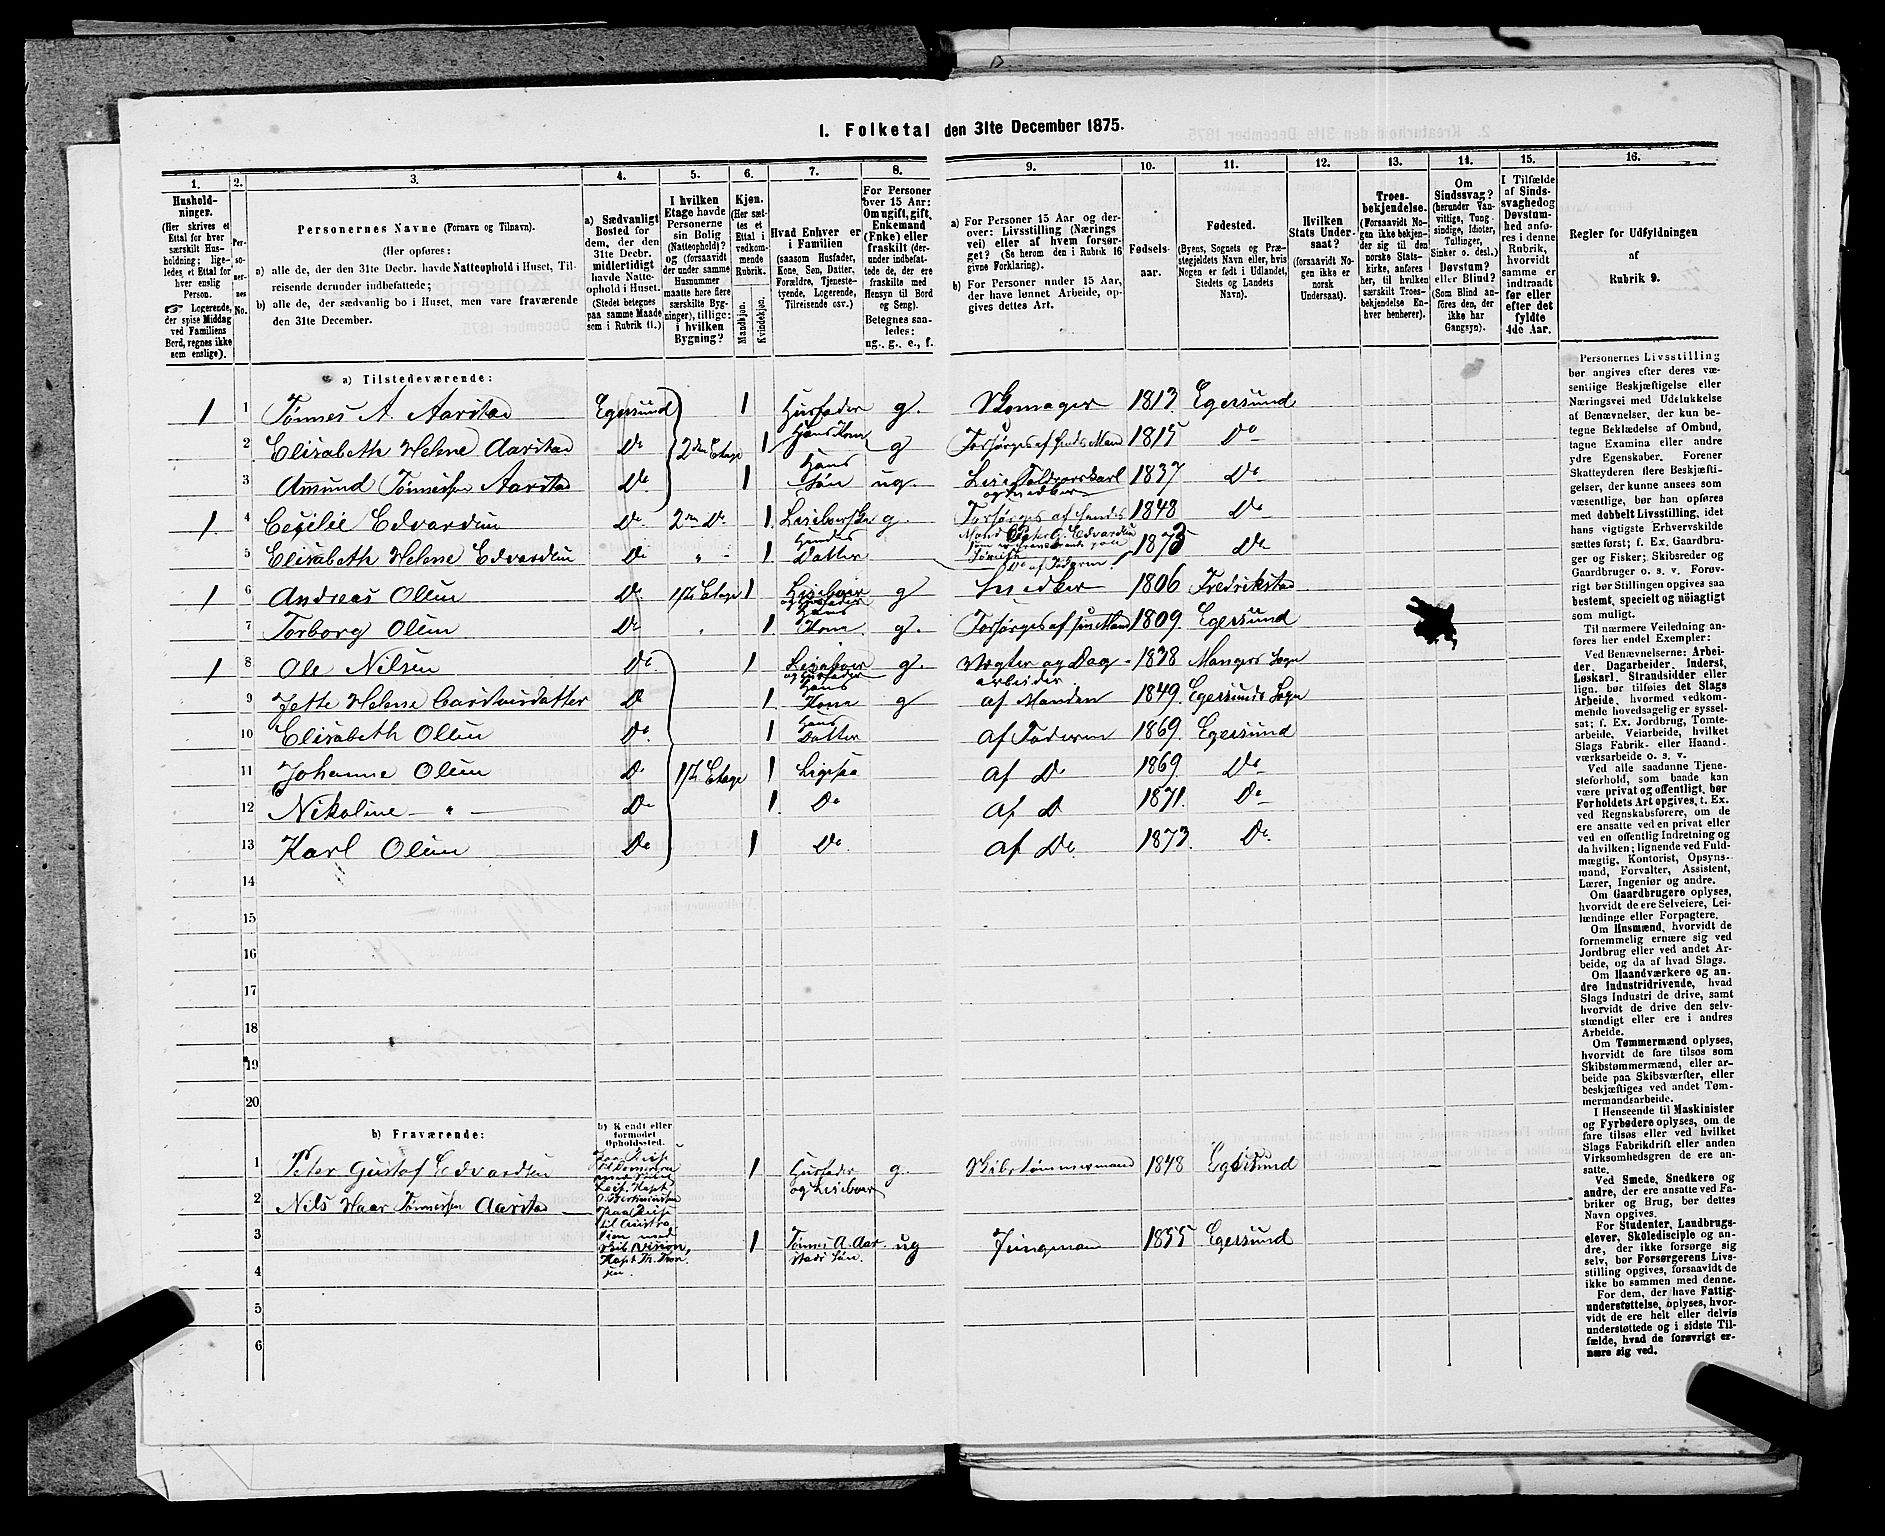 1. Folketal den 31te December 1875.
1. 2. 3. 4. 5. 6. 7. 8. 9. 10. 11. 12. 13. 14. 15. 16.
Hushold-
ninger.
(Her skrives et
Ettal for hver
særskilt Hus-
holdning; lige-
ledes et Ettal for
hver enslig
Person.
☞ Logerende,
der spise Middag
ved Familiens
Bord, regnes ikke
som enslige).
Per-
so-
ner-
nes
No.
Personernes Navne (Fornavn og Tilnavn).
(Her opføres:
a) alle de, der den 31te Decbr. havde Natteophold i Huset, Til-
reisende derunder indbefattede;
b) alle de, der sædvanlig bo i Huset, men vare fraværende
den 31te December.
a) Sædvanligt
Bosted for
dem, der den
31te Decbr.
midlertidigt
havde Natte-
ophold i Huset.
(Stedet betegnes
paa samme Maade
som i Rubrik 11.)
I hvilken
Etage havde
Personerne
sin Bolig
(Natteophold)?
og (forsaavidt
der under samme
Husnummer
maatte høre flere
særskilte Byg-
ninger), tillige:
i hvilken
Bygning?
Kjøn.
(Her sæt-
tes et
Ettal i
vedkom-
mende
Rubrik.
Mandkjøn.
Kvindekjøn.
Hvad Enhver er
i Familien
(saasom Husfader,
Kone, Søn, Datter,
Forældre, Tjeneste-
tyende, Logerende,
Tilreisende osv.)
For Personer
over 15 Aar:
Om ugift, gift,
Enkemand
(Enke) eller
fraskilt (der-
under indbefat-
tede de, der ere
fraskilte med
Hensyn til Bord
og Seng).
Betegnes saa-
ledes:
ug., g., e., f.
a) For Personer 15 Aar og der-
over: Livsstilling (Nærings
vei) eller af hvem forsør-
get? (Se herom den i Rubrik 16
givne Forklaring).
b) For Personer under 15 Aar,
der have lønnet Arbeide, op-
gives dettes Art.
Fødsels-
aar.
Fødested.
(Byens, Sognets og Præ-
stegjeldets Navn eller, hvis
Nogen er født i Udlandet,
Stedets og Landets
Navn).
Hvilken
Stats Under-
saat?
(forsaavidt No-
gen ikke er
norsk
Undersaat).
Troes-
bekjendelse.
(Forsaavidt No-
gen ikke bekjen-
der sig til den
norske Stats-
kirke, anføres
her, til hvilken
særskilt Troes-
bekjendelse En-
hver henhører).
Om
Sindssvag?
(herunder Van-
vittige, Tung-
sindige, Idioter,
Tullinger,
Sinker o. desl.)
Døvstum?
eller Blind?
(Som Blind an-
føres den, der
ikke har
Gangsyn).
I Tilfælde
af Sinds-
svaghed og
Døvstum-
hed anfø-
res i denne
Rubrik,
hvorvidt
samme er
indtraadt
før eller
efter det
fyldte
4de Aar.
Regler for Udfyldningen
af
Rubrik 9.
a) Tilstedeværende:
1 1 Tønnes A. Aarstad Egersund 1 Husfader g. Skomager 1813 Egersund
2 Elisabeth Helene Aarstad Do 2den Etage 1 Hans Kone g Forsørges af hendes Mand 1815 Do
3 Amund Tønnessen Aarstad Do 1 Hans Søn ug 1837 Do
og Snedker
1 4 Cecilie Edvardsen Do 2den Do 1 g. Forsørges af hendes 1848 Do
5 Elisabeth Helene Edvardsen Do " 1 Hendes Datter 1873 Do
Do af Faderen
1 6 Andreas Olsen Do 1ste Etage 1 Leieboer og Husfader g Snedker 1806 Fredrikstad
7 Torborg Olsen Do " 1 Hans Kone g. Forsørges af sin Mand 1809 Egersund
1 8 Ole Nilsen Do 1 Leieboer og Husfader g. Vægter og Dag- arbeider 1838 Mangers Sogn
9 Jette Helene Do 1 Hans Kone g af Manden 1849 Egersunds Sogn
10 Elisabeth Olsen Do 1 Hans Datter af Faderen 1869 Egersund
11 Johanne Olsen Do 1ste Etage 1 Ligesaa af Do 1869 Do
12 Nikoline — " — Do 1 Do af Do 1871 Do
13 Karl Olsen Do 1 Do af Do 1873 Do
14
15
16
17
18
19
20
b) Fraværende:
b) Kjendt eller
formodet
Opholdssted.
1 Peter Gustaf Edvardsen 1 Husfader og Leieboer g. Skibstømmermand 1848 Egersund
2 Nils Haar Tønnessen Aarstad
3 1 Tønnes A. Aarstads Søn ug Jungmand 1855 Egersund
4
5
6
Personernes Livsstilling
bør angives efter deres væ-
sentlige Beskjæftigelse eller
Næringsvei med Udelukkelse
af Benævnelser, der kun be-
tegne Beklædelse af Ombud,
tagne Examina eller andre
ydre Egenskaber. Forener
Skatteyderen flere Beskjæfti-
gelser, der kunne ansees som
væsentlige, bør han opføres
med dobbelt Livsstilling, idet
hans vigtigste Erhvervskilde
sættes først; f. Ex. Gaardbru-
ger og Fisker; Skibsreder og
Gaardbruger o. s. v. Forøv-
rigt bør Stillingen opgives saa
bestemt, specielt og nöiagtigt
som muligt.
Til nærmere Veiledning an-
føres her endel Exempler:
Ved Benævnelserne: Arbei-
der, Dagarbeider, Inderst,
Løskarl, Strandsidder eller
lign. bør tilføies det Slags
Arbeide, hvormed vedkom-
mende hovedsagelig er syssel-
sat; f. Ex. Jordbrug, Tomte-
arbeide, Veiarbeide, hvilket
Slags Fabrik- eller Haand-
værksarbeide o. s. v.
Ved alle saadanne Tjene-
steforhold, som baade kan
være privat og offentligt, bør
Forholdets Art opgives, t. Ex.
ved Regnskabsførere, om de
ere ansatte ved en privat eller
ved en offentlig Indretning og
da hvilken; lignende ved Fuld-
mægtig, Kontorist, Opsyns-
mand, Forvalter, Assistent,
Lærer, Ingeniør og andre.
Om Gaardbrugere oplyses,
hvorvidt de ere Selveiere, Lei-
lændinge eller Forpagtere.
Om Husmænd, hvorvidt de
fornemmelig ernære sig ved
Jordbrug eller ved andet Ar-
beide, og da af hvad Slags.
Om Haandværkere og an-
dre Industridrivende, hvad
Slags Industri de drive, samt
hvorvidt de drive den selv-
stændigt eller ere i andres
Arbeide.
Om Tømmermænd oplyses,
hvorvidt de fare tilsøs som
Skibstømmermænd, eller ar-
beide paa Skibsværfter, eller
beskjæftiges ved andet Tøm-
mermandsarbeide.
I Henseende til Maskinister
og Fyrbødere oplyses, om de
fare tilsøs eller ved hvilket
Slags Fabrikdrift eller anden
Virksomhedsgren de ere an-
satte.
Ved Smede, Snedkere og
andre, der ere ansatte ved Fa-
briker og Brug, bør dettes
Navn opgives.
For Studenter, Landbrugs-
elever, Skoledisciple og an-
dre, der ikke forsørge sig
selv, bør Forsørgerens Livs-
stilling opgives, forsaavidt de
ikke bo sammen med denne.
For dem, der have Fattig-
understøttelse, oplyses, hvor-
vidt de ere helt eller delvis
understøttede og i sidste Til-
fælde, hvad de forøvrigt er-
nære sig ved.